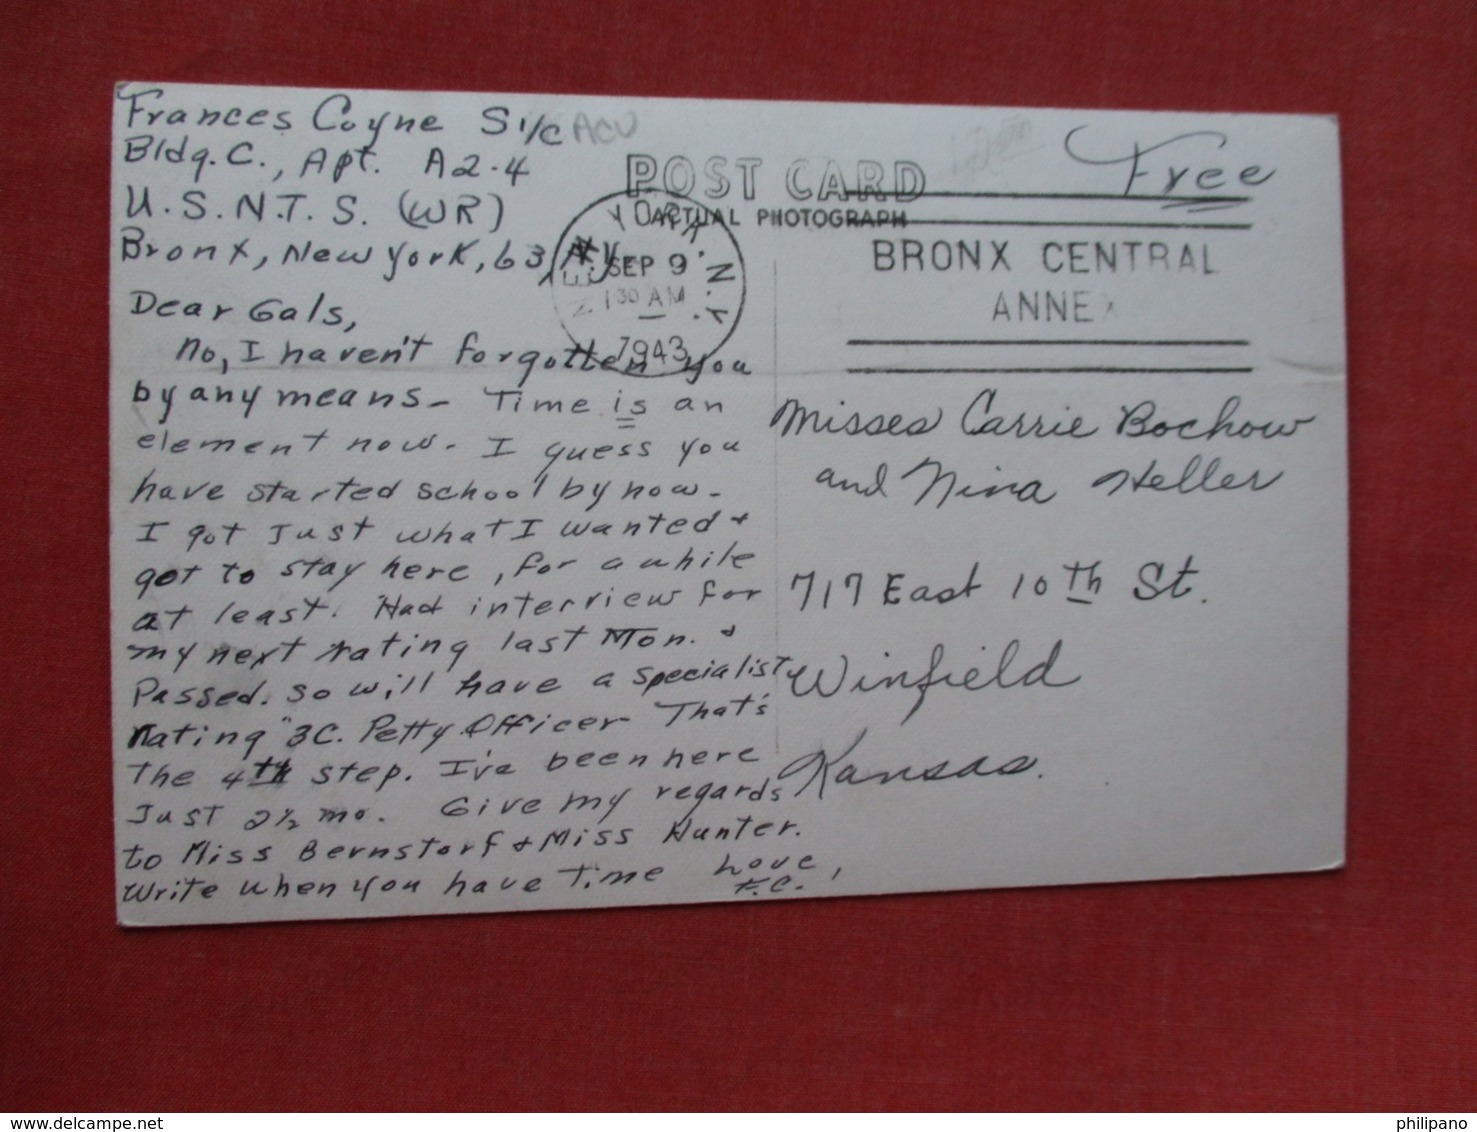 Frances Coyne S 1/c
Bldg. C., Apt. A2-4
U.S.N.T.S. (WR)
Bronx, New York, 63, N.Y.
Dear Gals,
No, I haven't forgotten you
by any means - Time is an
element now - I guess you
have started school by now -
I got just what I wanted +
got to stay here, for a while
at least. Had interview for
my next rating last Mon. +
passed. so will have a specialist
rating "3C. Petty Officer - That's
the 4th step. I've been here
Just 2½ mo. Give my regards
to Miss Bernstorf + Miss Hunter.
Write when you have Time Love,
F.C.
POST CARD
ACTUAL PHOTOGRAPH
NEW YORK, N.Y.
SEP 9
1 30 AM
1943
BRONX CENTRAL
ANNEX
Free
Misses Carrie Bochow
and Nina Heller
717 East 10th St.
Winfield
Kansas.
www.delcampe.net
philipano